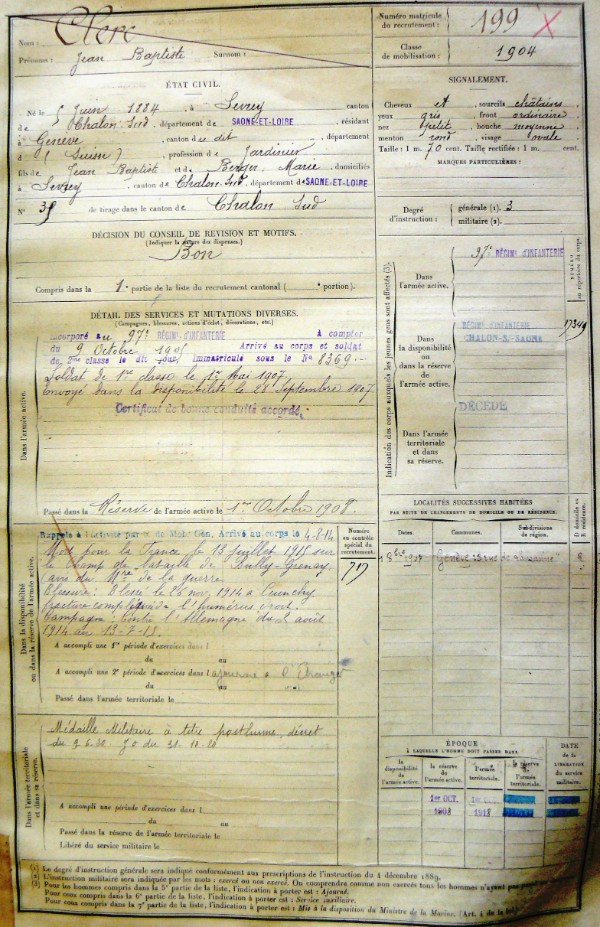 Nom : Clerc
Prénoms : Jean Baptiste
Surnom :
Numéro matricule du recrutement : 199
Classe de mobilisation : 1904
ÉTAT CIVIL.
Né le 5 Juin 1884, à Sevrey, canton
de Chalon Sud, département de SAONE-ET-LOIRE, résidant
à Genève, canton de dit, département
d (Suisse), profession de Jardinier
fils de Jean Baptiste et de Berger, Marie, domiciliés
à Sevrey, canton de Chalon-Sud, département de SAONE-ET-LOIRE
N° 35 de tirage dans le canton de Chalon Sud
SIGNALEMENT.
Cheveux et sourcils châtains
yeux gris, front ordinaire
nez petite, bouche moyenne
menton rond, visage ovale
Taille : 1 m. 70 cent. Taille rectifiée : 1 m. cent.
MARQUES PARTICULIÈRES :
Degré d'instruction : générale (1). 3
militaire (2).
DÉCISION DU CONSEIL DE REVISION ET MOTIFS.
(Indiquer la nature des dispenses.)
Bon
Compris dans la 1e partie de la liste du recrutement cantonal ( portion).
DÉTAIL DES SERVICES ET MUTATIONS DIVERSES.
(Campagnes, blessures, actions d'éclat, décorations, etc.)
Dans l'armée active.
Incorporé au 97e RÉGIMt D'INFANTERIE A compter
du 9 Octobre Arrivé au corps et soldat
de 2me classe le dit jour. Immatriculé sous le No 8369
Soldat de 1re classe le Mai 1907
Envoyé dans la disponibilité le 28 Septembre 1907
Certificat de bonne conduite accordé.
Passé dans la Réserve de l'armée active le 1er Octobre 1908.
Indication des corps auxquels les jeunes gens sont affectés (3).
NUMÉRO au répertoire du corps
Dans l'armée active.
97e RÉGIMt D'INFANTERIE
Dans la disponibilité ou dans la réserve de l'armée active.
RÉGIMt D'INFANTERIE
CHALON-S-SAONE
DÉCÉDÉ
Dans l'armée territoriale et dans sa réserve.
Dans la disponibilité ou dans la réserve de l'armée active.
Rappelé à l'activité par de Mob. Gén. Arrivé au corps le 4-8-14.
Mort pour la France le 13 juillet 1915 sur
le Champ de bataille de Bully-Grenay
(avis du Mre de la guerre
Blessure : Blessé le 26 nov. 1914 à Cuinchy
fracture compliquée de l'humérus droit.
Campagne : contre l'Allemagne du août
1914 au
Numéro au contrôle spécial du recrutement.
717
A accompli une 1re période d'exercices dans l
du au
A accompli une 2e période d'exercices dans l ajourné à l'Étranger
du au
Passé dans l'armée territoriale le
LOCALITÉS SUCCESSIVES HABITÉES
PAR SUITE DE CHANGEMENTS DE DOMICILE OU DE RÉSIDENCE.
Dates.
Communes.
Subdivisions de région.
D domicile ou R résidence.
Genève R
Dans l'armée territoriale et dans sa réserve.
Médaille Militaire à titre posthume, décret
du JO du
A accompli une période d'exercices dans l
du au
Passé dans la réserve de l'armée territoriale le
Libéré du service militaire le
ÉPOQUE
À LAQUELLE L'HOMME DOIT PASSER DANS
DATE de la LIBÉRATION du service militaire.
la disponibilité de l'armée active.
la réserve de l'armée active.
l'armée territoriale.
la réserve de l'armée territoriale.
1er OCT.
1908
1918
(1) Le degré d'instruction générale sera indiqué conformément aux prescriptions de l'instruction du 4 décembre 1889.
(2) L'instruction militaire sera indiquée par les mots : exercé ou non exercé. On comprendra comme non exercés tous les hommes n'ayant pas
(3) Pour les hommes compris dans la 5e partie de la liste, l'indication à porter est : Ajourné.
Pour ceux compris dans la 6e partie de la liste, l'indication à porter est : Service auxiliaire.
Pour ceux compris dans la 7e partie de la liste, l'indication à porter est : Mis à la disposition du Ministre de la Marine. (Art. 4 de la loi